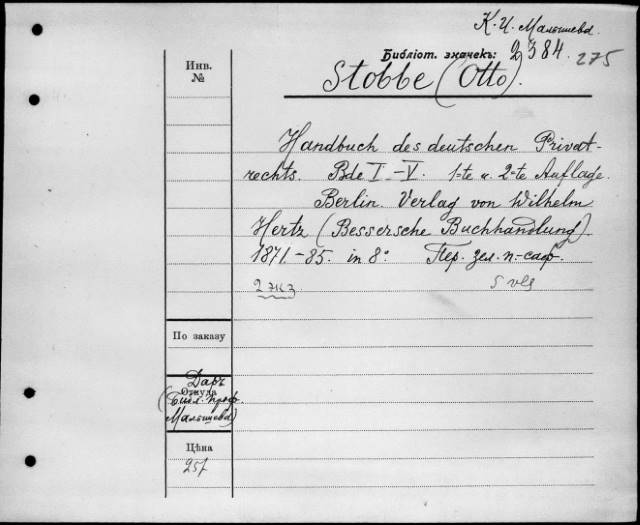 К. И. Малышева.
Библіот. значекъ: 2384. 275
Инв.
№
Stobbe (Otto).
Handbuch des deutschen Privat-
rechts. Bde I–V. 1-te u. 2-te Auflage.
Berlin. Verlag von Wilhelm
Hertz (Bessersche Buchhandlung)
1871.-85. in 8º. Пер. зел. п.-саф.
2 экз
5 vls
По заказу
Даръ
Откуда
(Библ. проф.
Малышева)
Цѣна